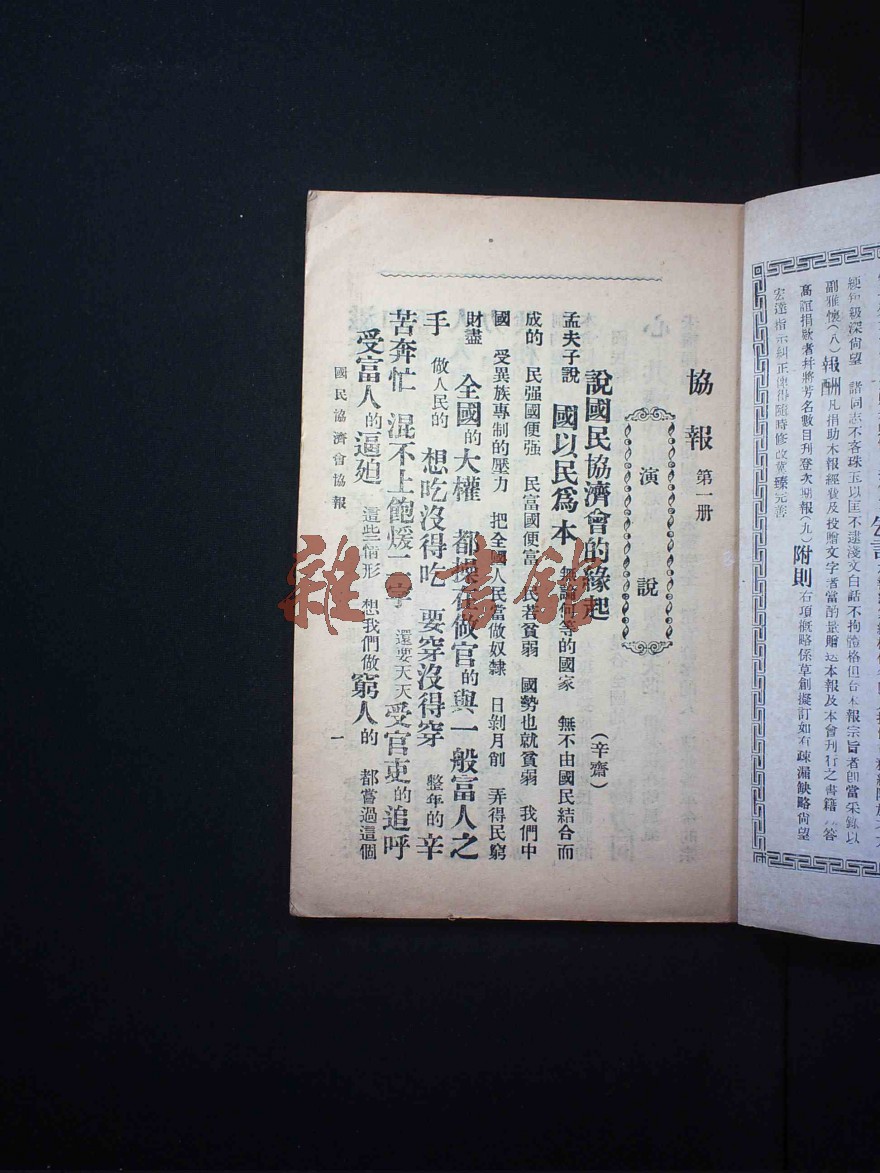 宏達指示糾正俾得隨時修改冀臻完善
高誼捐欵者幷將芳名數目刋登次期報(九)附則右項槪略係草創擬訂如有疎漏缺略尙望
副雅懷(八)報酬凡捐助本報經費及投贈文字者當酌量贈送本報及本會刊行之書籍以答
綆短級深尙望 諸同志不吝珠玉以匡不逮淺文白話不拘體格但合本報宗旨者卽當采錄以
協報 第一册
演說
說國民協濟會的緣起 (辛齋)
孟夫子說 國以民爲本 無論何等的國家 無不由國民結合而
成的 民强國便强 民富國便富 民若貧弱 國勢也就貧弱 我們中
國 受異族專制的壓力 把全國人民當做奴隸 日剝月削 弄得民窮
財盡 全國的大權 都操在做官的與一般富人之
手 做人民的 想吃沒得吃 要穿沒得穿 整年的辛
苦奔忙 混不上飽煖二字 還要天天受官吏的追呼
受富人的逼廹 這些情形 想我們做窮人的 都嘗過這個
國民協濟會協報
一
雜·書館